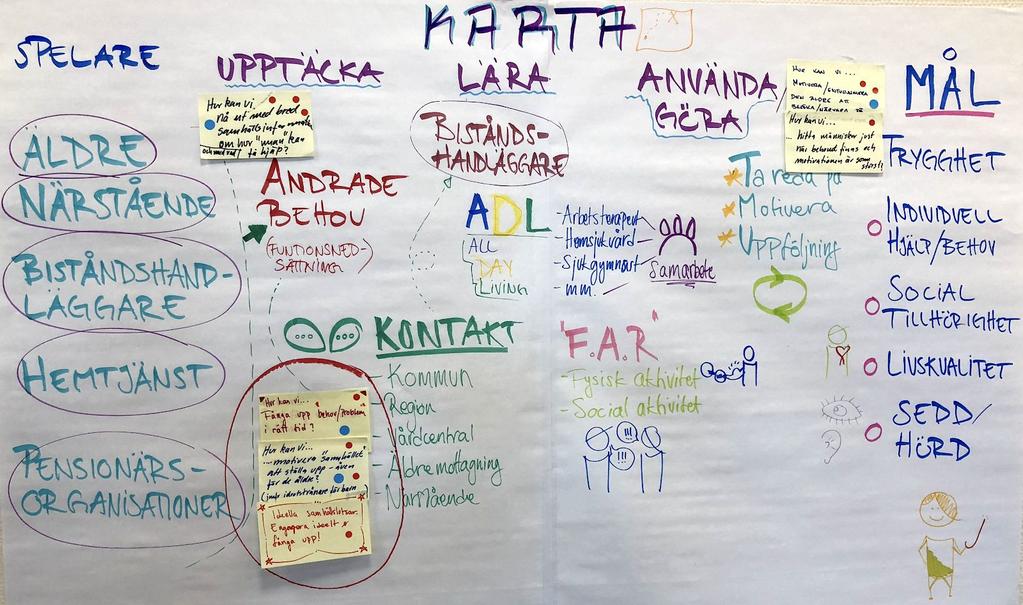 KARTA
SPELARE
ÄLDRE
NÄRSTÅENDE
BISTÅNDSHAND-
LÄGGARE
HEMTJÄNST
PENSIONÄRS-
ORGANISATIONER
UPPTÄCKA
Hur kan vi..
nå ut med bred
samhällsinformation
om hur "man" kan
få hjälp?
ÄNDRADE
BEHOV
(FUNTIONSNED-
SÄTTNING)
KONTAKT
- Kommun
- Region
- Vårdcentral
- Äldremottagning
- Närstående
Hur kan vi...
Fånga upp behov/problem
i rätt tid?
Hur kan vi...
...motivera "samhället"
att ställa upp - även
för de äldre?
(jmf idrottstränare för barn
Ideella samhällslotsar.
Engagera ideellt &
fånga upp!
LÄRA
BISTÅNDS-
HANDLÄGGARE
ADL
ALL
DAY
LIVING
- Arbetsterapeut
- Hemsjukvård
- Sjukgymnast
- m.m.
Samarbete
"F.A.R"
- Fysisk aktivitet
- Social aktivitet
ANVÄNDA
GÖRA
HUR KAN VI...
MOTIVERA/ENTUSIASMERA
DEN ÄLDRE ATT
Hur kan vi...
... hitta människor just
när behovet finns och
motivationen är som
störst!
Ta reda på
Motivera
Uppföljning
MÅL
TRYGGHET
INDIVIDUELL
HJÄLP/BEHOV
SOCIAL
TILLHÖRIGHET
LIVSKVALITET
SEDD/
HÖRD